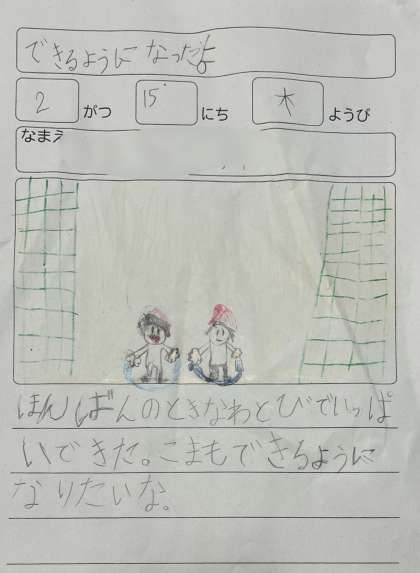 できるようになったよ
2 がつ 15 にち 木 ようび
なまえ
ほんばんのときなわとびでいっぱ
いできた。こまもできるように
なりたいな。